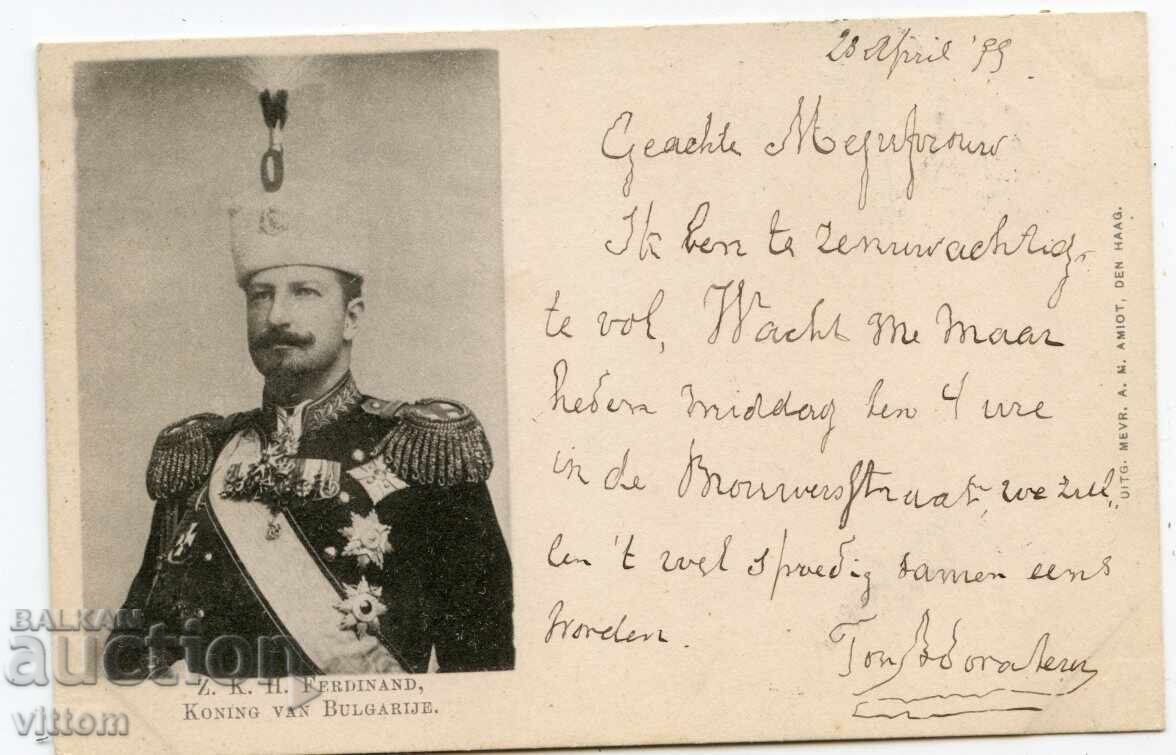 28 April '99
Geachte Mejufvrouw
Ik ben te zenuwachtig,
te vol, Wacht me maar
heden middag ten 4 ure
in de Brouwersstraat, we zul„
len 't wel spoedig samen eens
worden.
UITG. MEVR. A. M. AMIOT, DEN HAAG.
Z. K. H. FERDINAND,
KONING VAN BULGARIJE.
BALKAN
auction
vittom